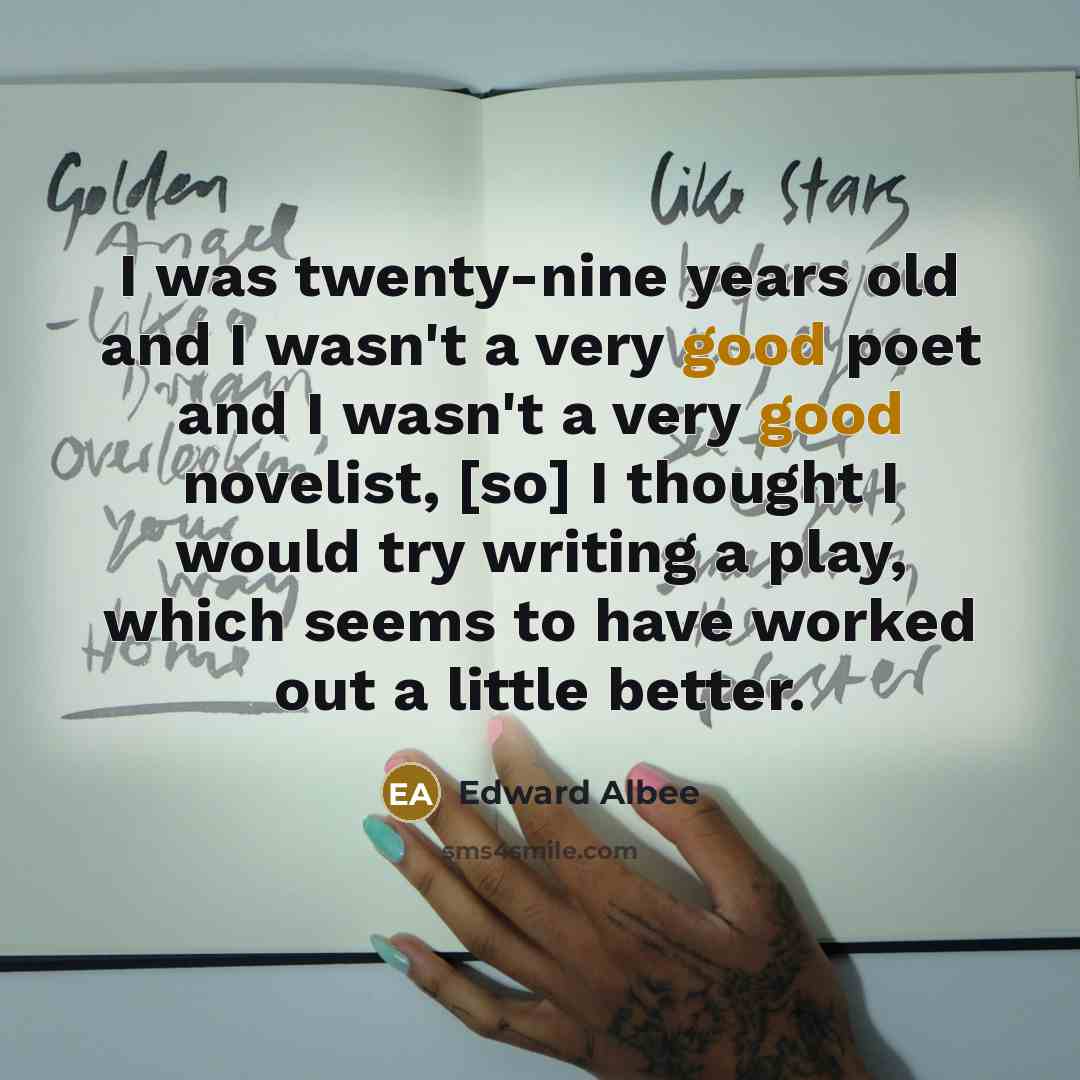 Golden
Angel
- Like a
Dream
Overlookin'
your
way
Home
Like Stars
I was twenty-nine years old
and I wasn't a very good poet
and I wasn't a very good
novelist, [so] I thought I
would try writing a play,
which seems to have worked
out a little better.
EA Edward Albee
sms4smile.com